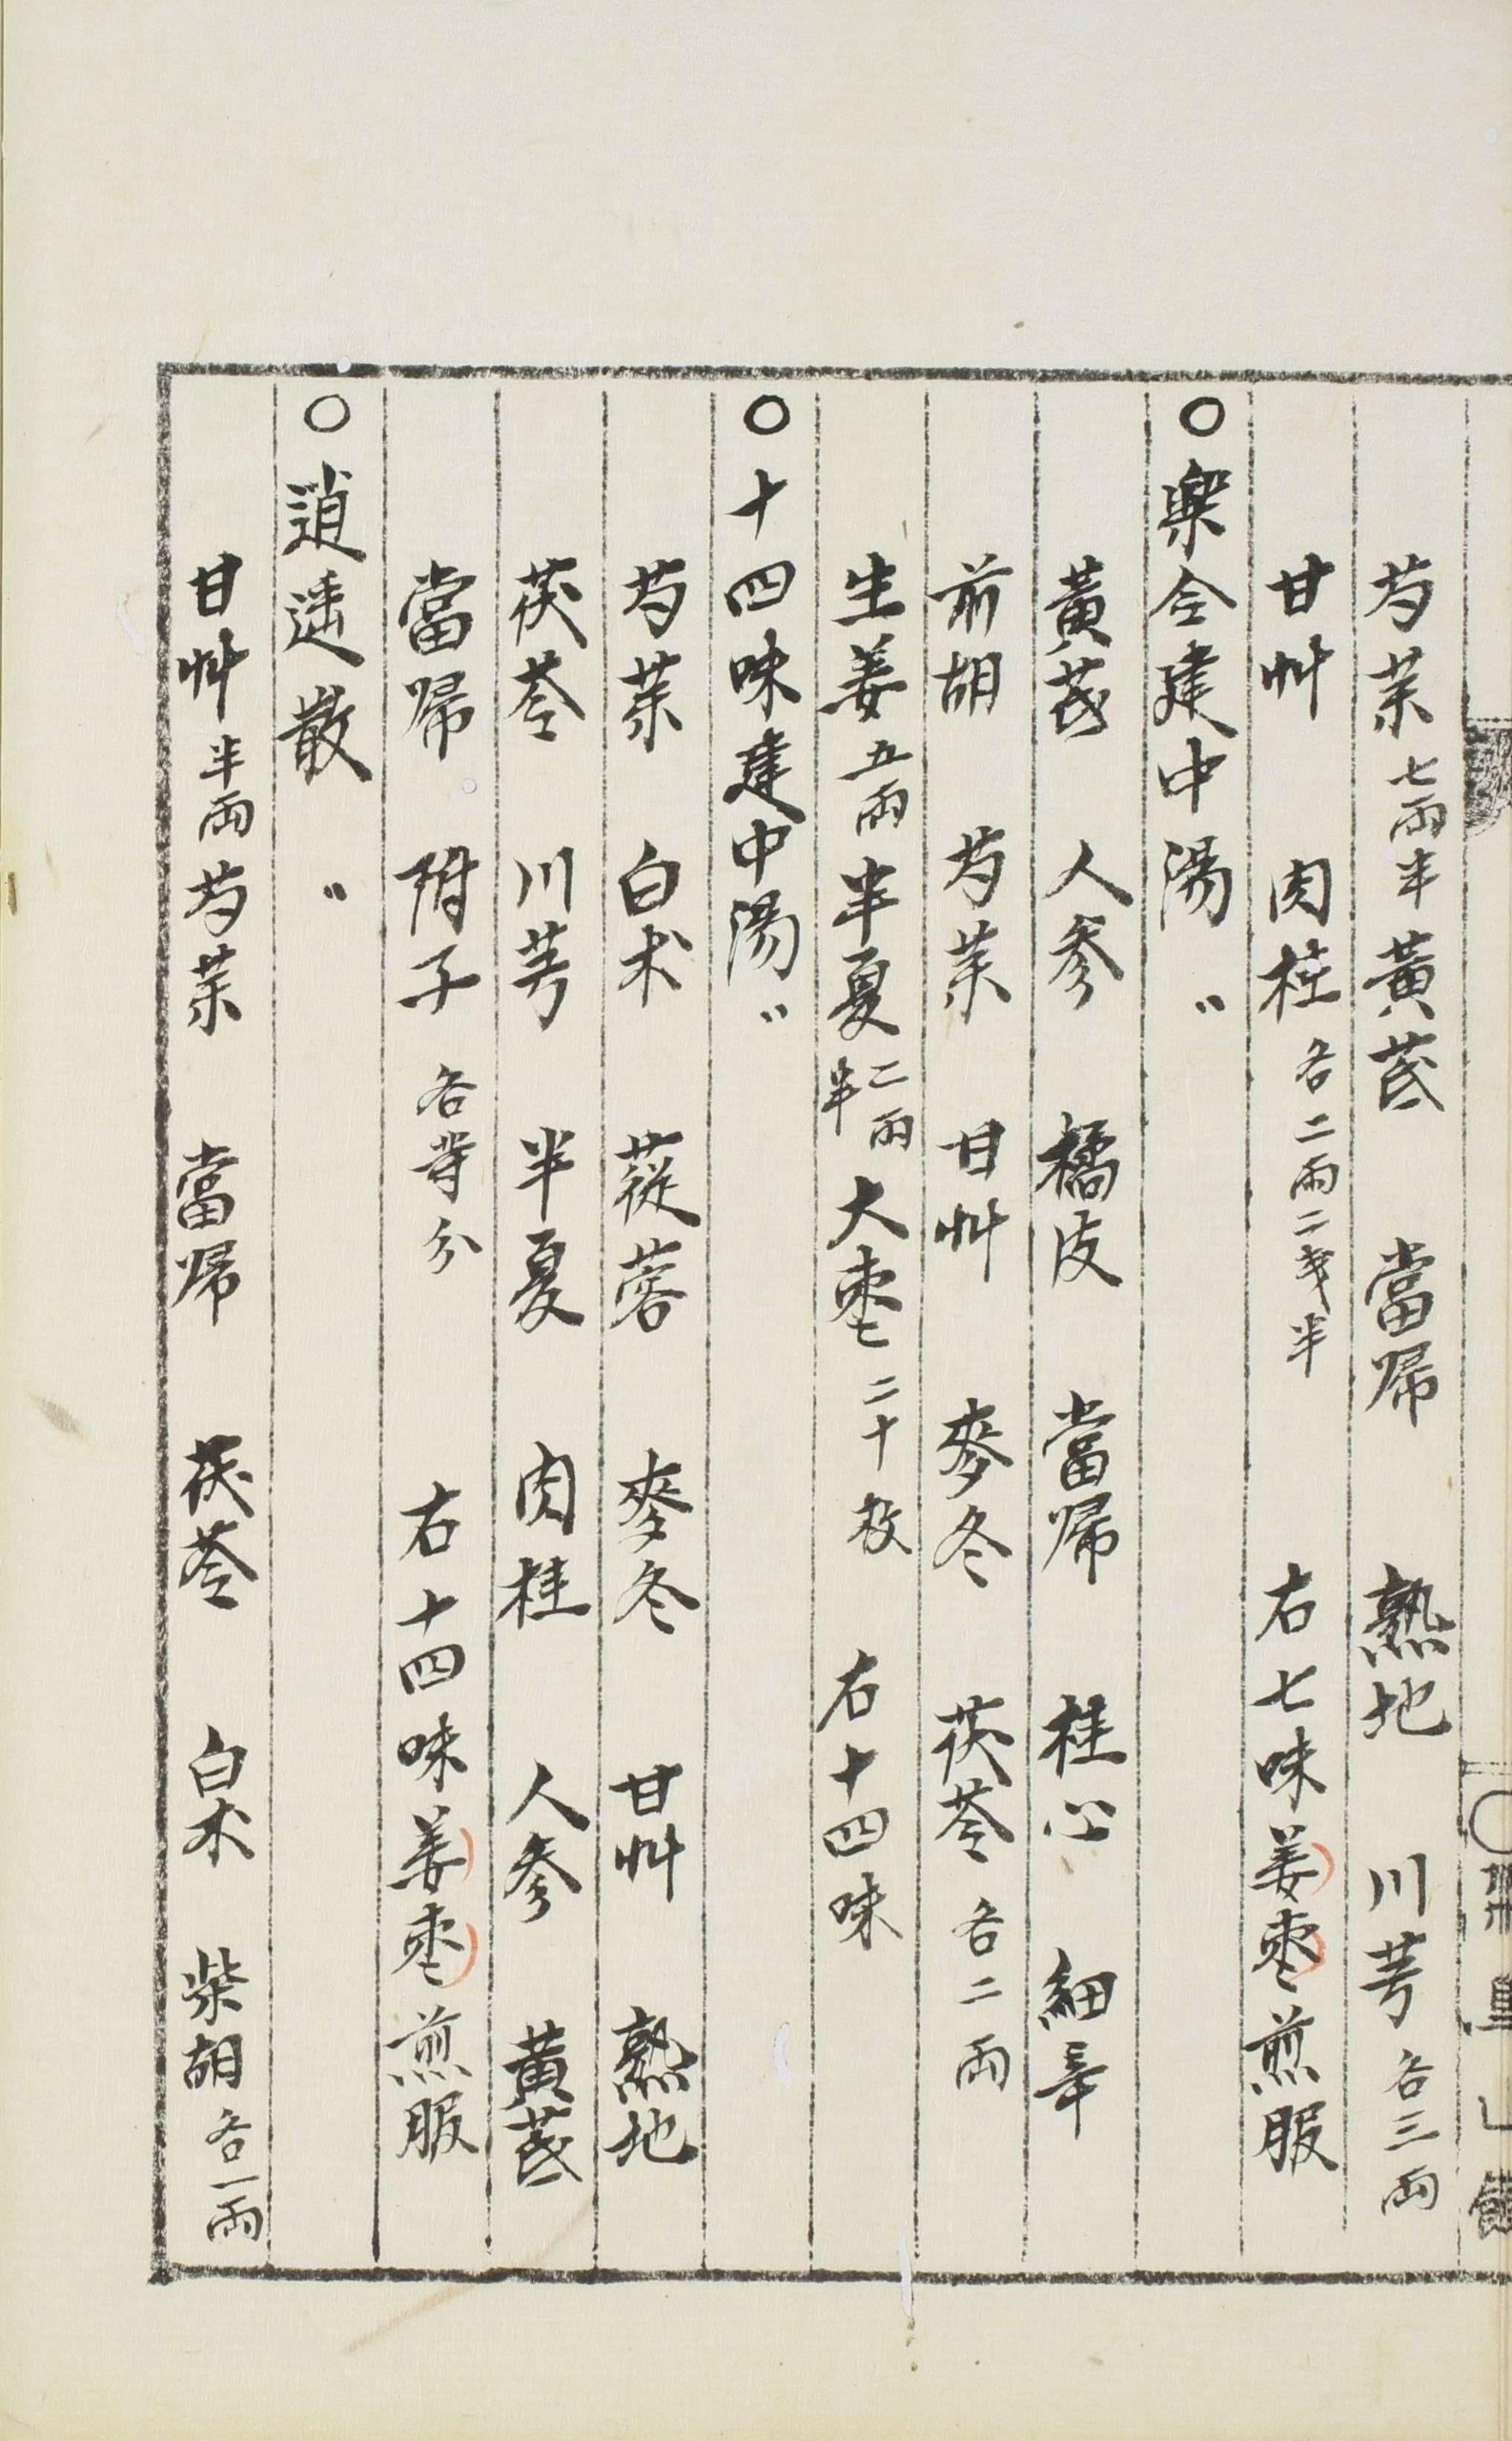 芍薬七兩半 黃芪 當帰 熟地 川芎各三兩
甘艸 肉桂各二兩二戔半 右七味姜枣煎服
○樂令建中湯〃
黃芪 人參 橘皮 當帰 桂心 細辛
前胡 芍薬 甘艸 麥冬 茯苓各二兩
生姜五兩 半夏二兩半 大枣二十枚 右十四味
○十四味建中湯〃
芍薬 白朮 蓯蓉 麥冬 甘艸 熟地
茯苓 川芎 半夏 肉桂 人參 黃芪
當帰 附子各等分 右十四味姜枣煎服
○逍遥散〃
甘艸半兩 芍薬 當帰 茯苓 白朮 柴胡各一兩